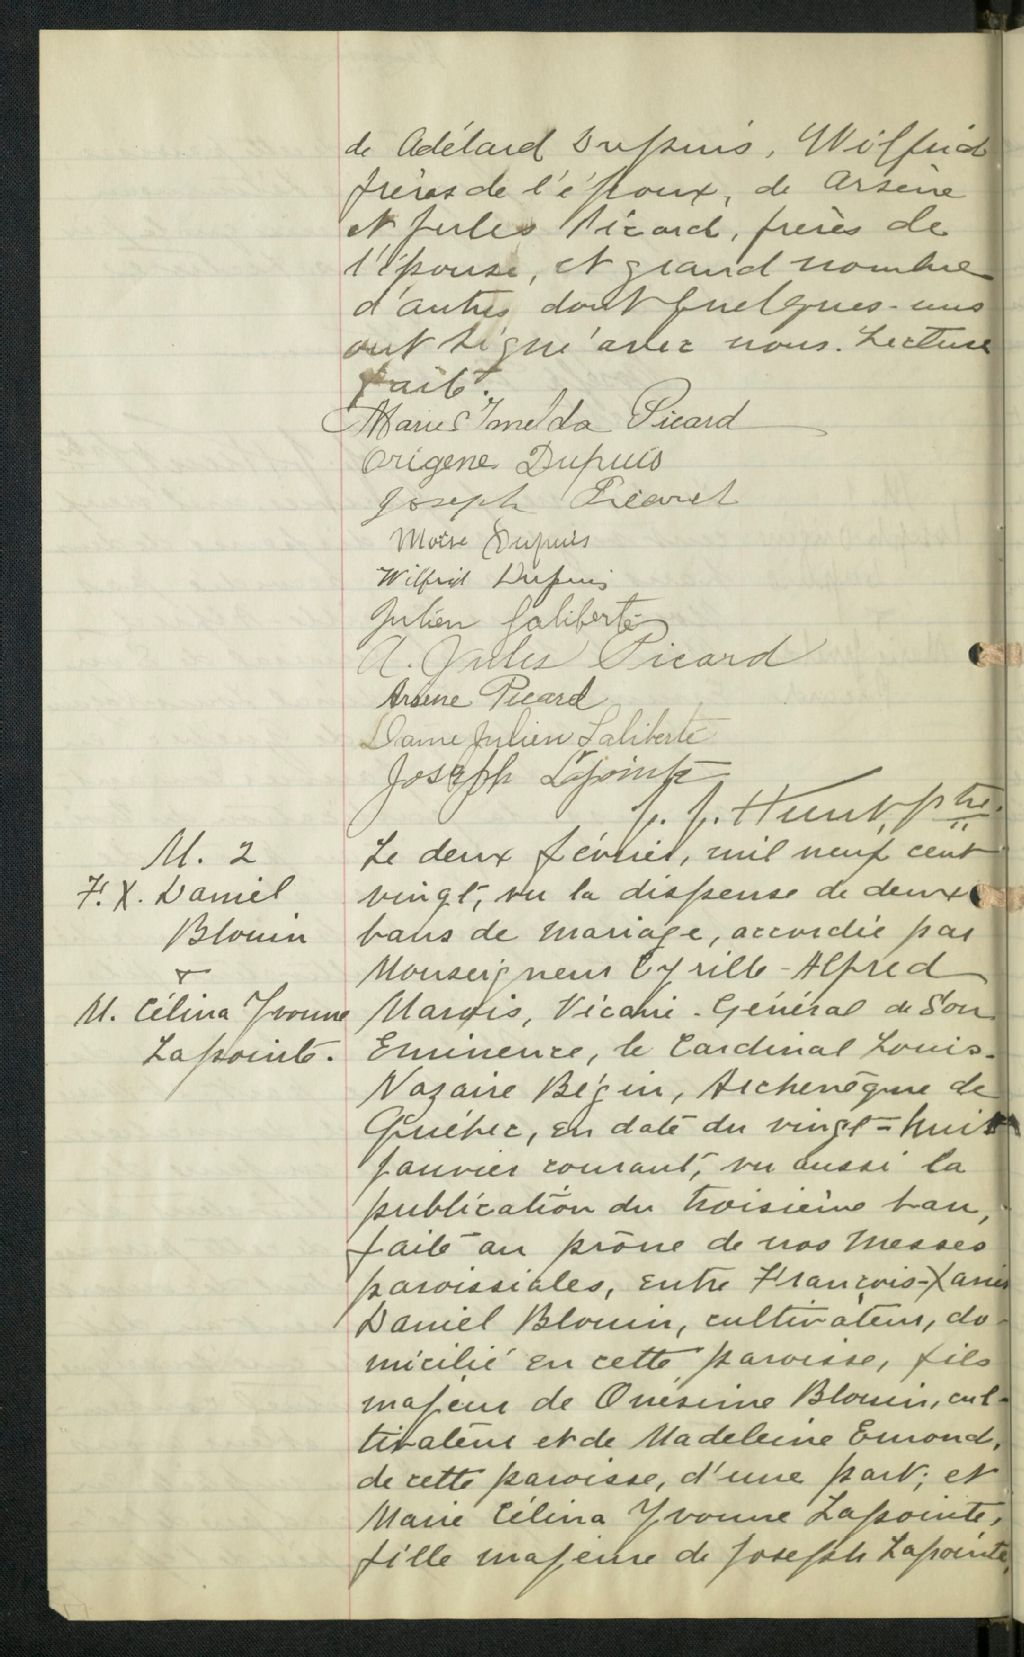 de Adélard Dupuis, Wilfrid
frères de l'époux, de Arsène
et Jules Picard, frères de
l'épouse, et grand nombre
d'autres dont quelques-uns
ont signé avec nous. Lecture
faite.
Marie Imelda Picard
Origène Dupuis
Joseph Picard
Moïse Dupuis
Wilfrid Dupuis
Julien Laliberté
A. Jules Picard
Arsène Picard
Dame Julien Laliberté
Joseph Lapointe
J. J. Hunt, ptre.
M. 2
F. X. Daniel
Blouin
&
M. Célina Yvonne
Lapointe.
Le deux février, mil neuf cent
vingt, vu la dispense de deux
bans de mariage, accordée par
Monseigneur Cyrille-Alfred
Marois, Vicaire-Général de Son
Eminence, le Cardinal Louis-
Nazaire Bégin, Archevêque de
Québec, en date du vingt-huit
janvier courant, vu aussi la
publication du troisième ban,
faite au prône de nos messes
paroissiales, entre François-Xavier
Daniel Blouin, cultivateur, do-
micilié en cette paroisse, fils
majeur de Onésime Blouin, cul-
tivateur et de Madeleine Emond,
de cette paroisse, d'une part; et
Marie Célina Yvonne Lapointe,
fille majeure de Joseph Lapointe,